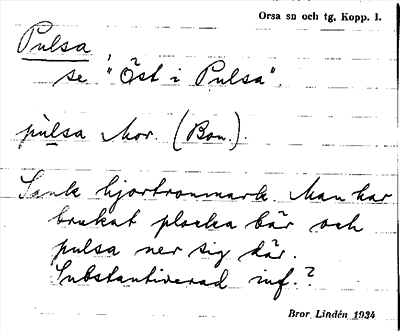 Orsa sn och tg, Kopp. l.
Pulsa,
se "Öst i Pulsa".
pulsa Mor. (Bon.).
Sank hjortronmark. Man har
brukat plocka bär och
pulsa ner sig där.
Substantiverad inf.?
Bror Lindén 1934